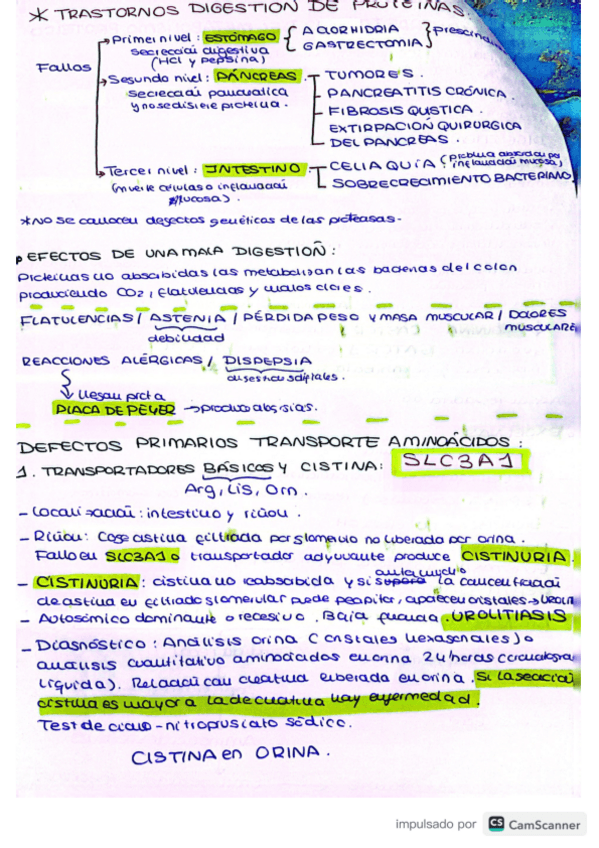 * TRASTORNOS DIGESTION DE PROTEINAS.
Fallos
Primer nivel: ESTÓMAGO
secreción digestiva
(HCl y Pepsina)
ACLORHIDRIA
GASTRECTOMIA
Segundo nivel: PÁNCREAS.
secreción pancreática
y no se digiere proteina.
TUMORES.
PANCREATITIS CRÓNICA.
FIBROSIS QUISTICA.
EXTIRPACIÓN QUIRURGICA
DEL PANCREAS.
Tercer nivel: INTESTINO.
(muerte células o inflamación
mucosa).
CELIAQUÍA (problema absorción por
inflamación mucosa)
SOBRECRECIMIENTO BACTERIANO
*No se conocen defectos genéticos de las proteasas.
EFECTOS DE UNA MALA DIGESTIÓN:
Proteinas no absorbidas las metabolizan las bacterias del colon
produciendo CO2, flatulencias y malos olores.
FLATULENCIAS / ASTENIA / PÉRDIDA PESO Y MASA MUSCULAR / DOLORES
MUSCULARE
debilidad
REACCIONES ALÉRGICAS / DISPEPSIA
digestion
Llegan prot a
PLACA DE PEYER → produce
DEFECTOS PRIMARIOS TRANSPORTE AMINOÁCIDOS:
1. TRANSPORTADORES BÁSICOS Y CISTINA: SLC3A1
Arg, Lis, Orn.
- Localización: intestino y riñón.
- Riñón: Coge cistina filtrada por glomerulo no liberada por orina.
Fallo en SLC3A1 o transportador adyuvante produce CISTINURIA.
- CISTINURIA: cistina no reabsorbida y si aumenta mucho la concentración
de cistina en filtrado glomerular puede precipitar, aparecen cristales →
- Autosómico dominante o recesivo. Baja UROLITIASIS
- Diagnóstico: Análisis orina (cristales hexagonales) o
analisis cuantitativo aminoácidos en orina 24 horas (cromatogra
liquida). Relación con creatina liberada en orina. Si la
cistina es mayor a la de creatina hay enfermedad.
Test de - nitroprusiato sódico.
CISTINA en ORINA.
impulsado por CS CamScanner